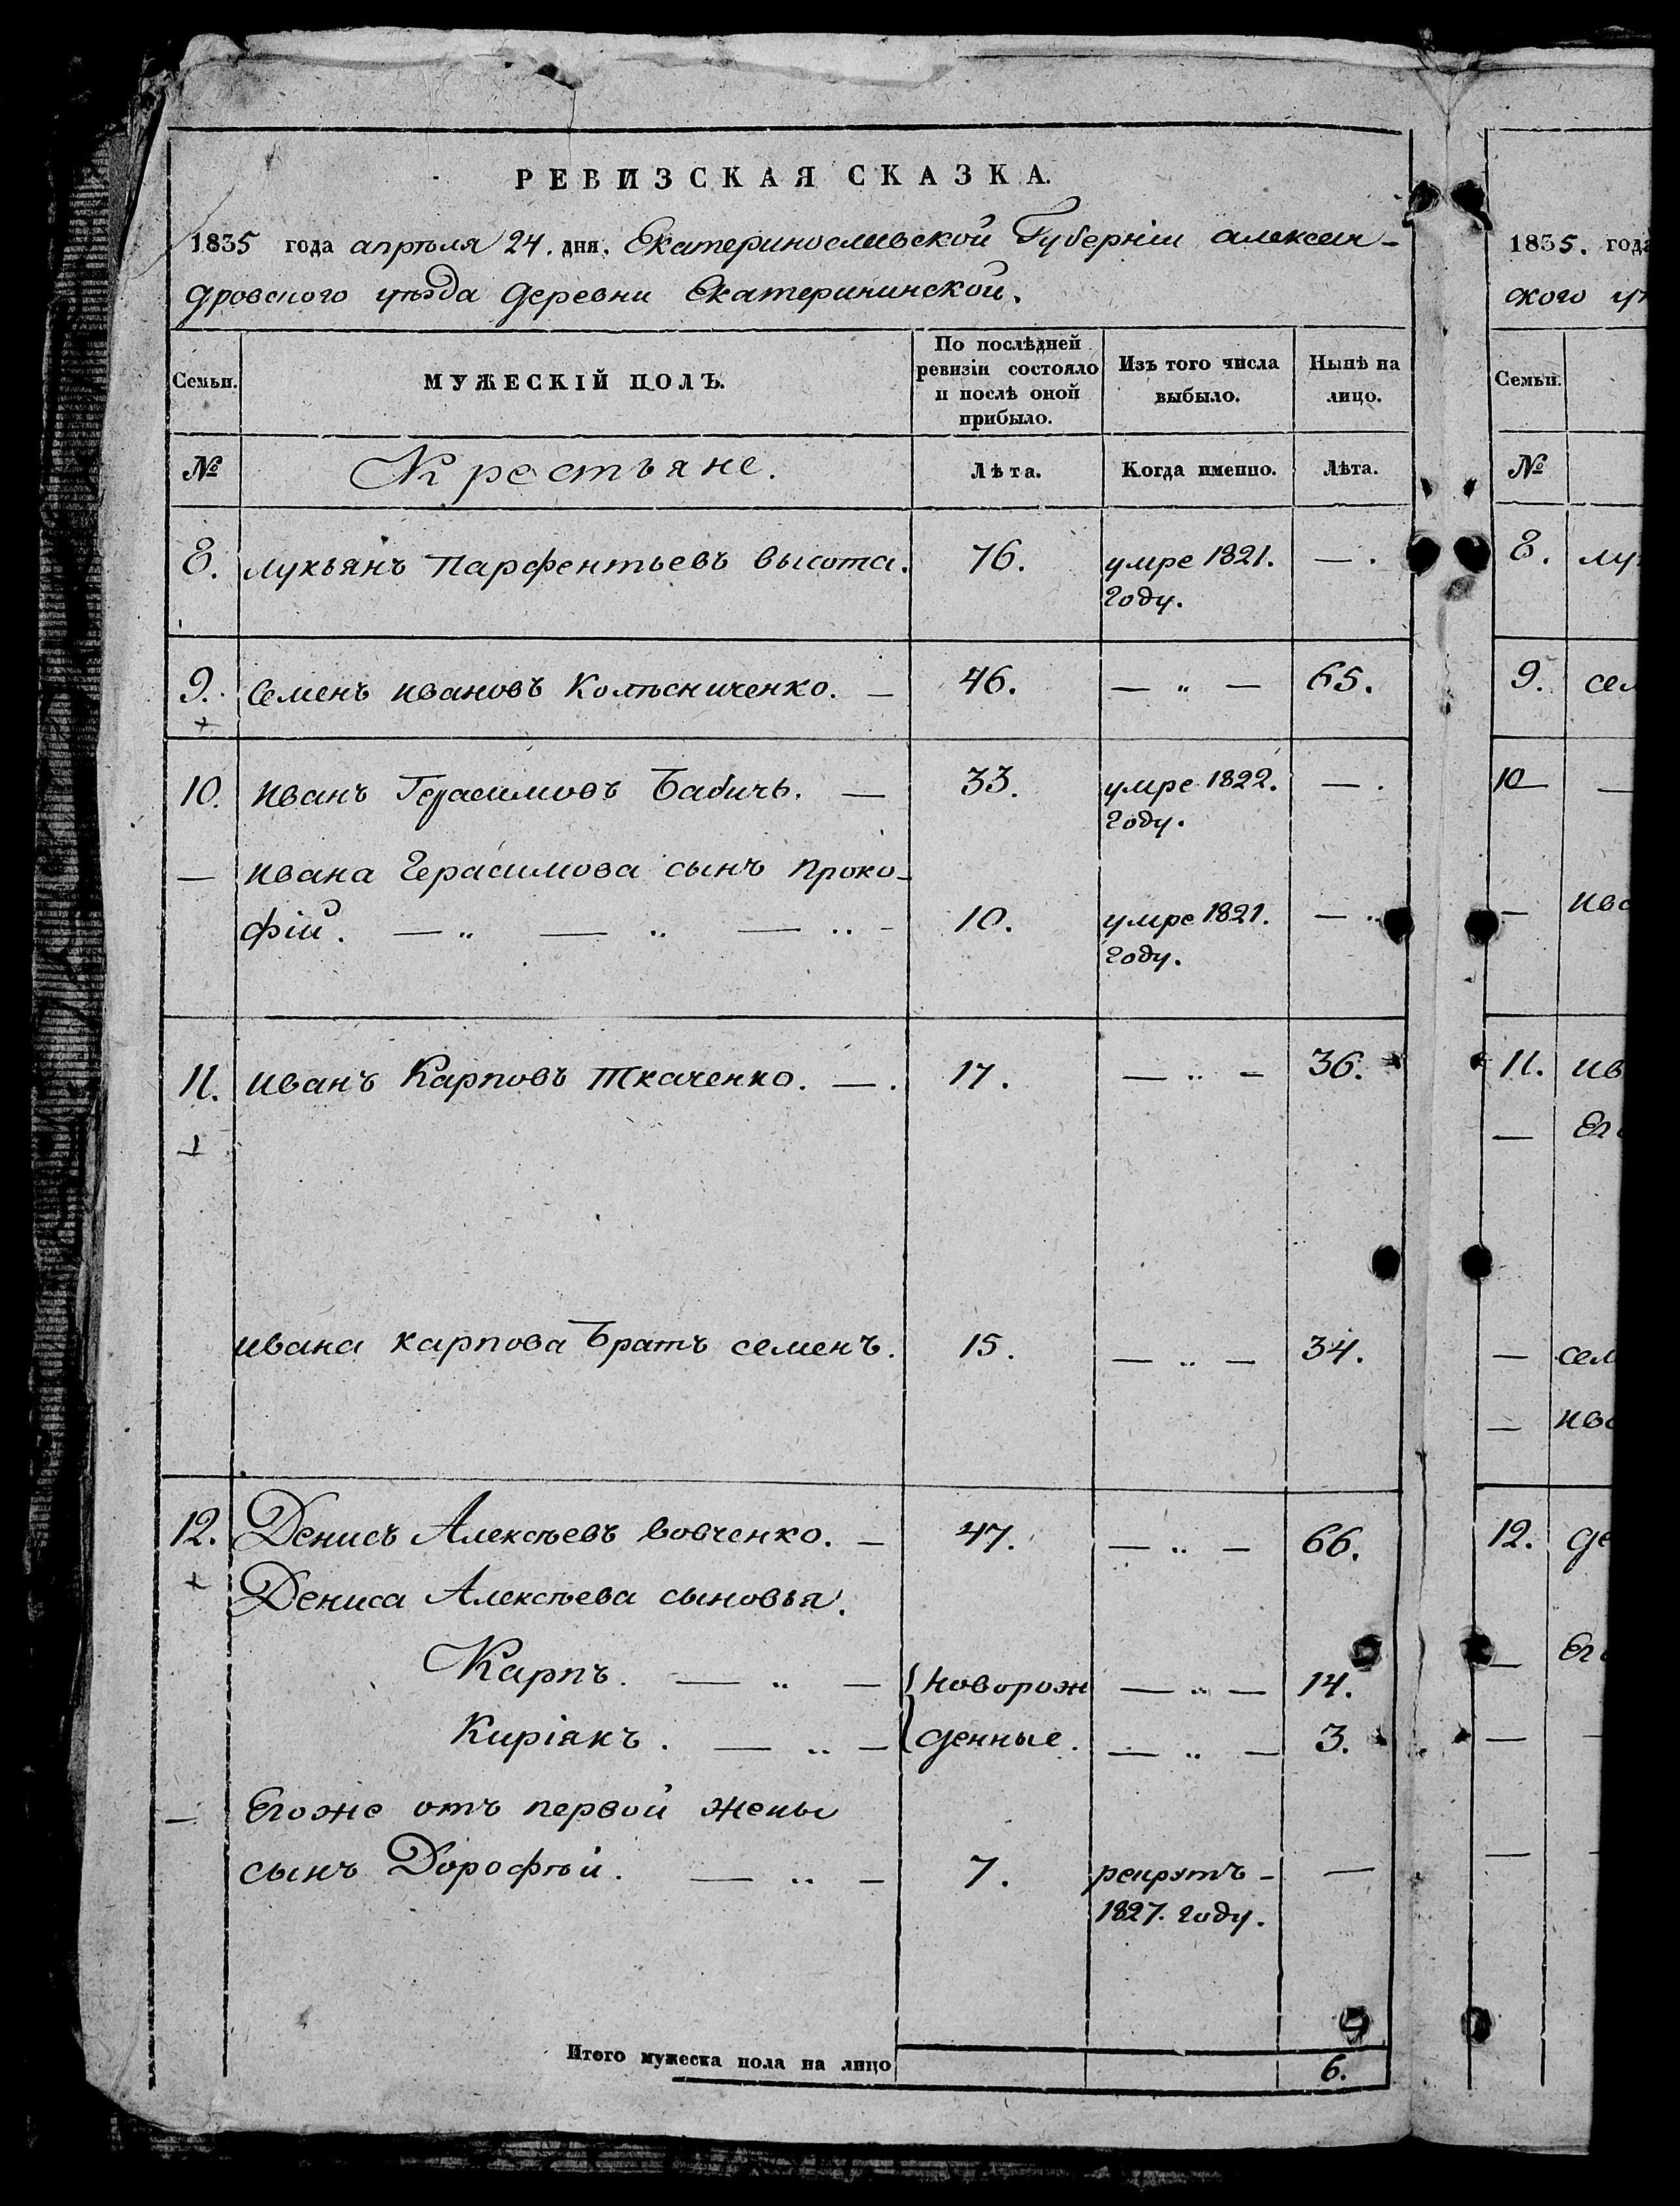 РЕВИЗСКАЯ СКАЗКА.
1835 года апрѣля 24. дня. Екатеринославской Губерніи алексан-
дровского уѣзда деревни Екатерининской.
Семьи.
МУЖЕСКІЙ ПОЛЪ.
По послѣдней ревизіи состояло и послѣ оной прибыло.
Изъ того числа выбыло.
Нынѣ на лицо.
№ Крестьяне. Лѣта. Когда именно. Лѣта.
8. лукьянъ Парфентьевъ высота. 76. умре 1821. — .
году.
9. Семенъ ивановъ Колѣсниченко. — 46. — „ — 65.
10. иванъ Герасимовъ Бабичь. — 33. умре 1822. — .
году.
— ивана Герасимова сынъ проко-
фій. — „ — „ — „ - 10. умре 1821. — „
году.
11. иванъ Карповъ Ткаченко. — . 17. — „ — 36.
ивана карпова Братъ семенъ. 15. — „ — 34.
12. Денисъ Алексѣевъ вовченко. — 47. — „ — 66.
Дениса Алексѣева сыновья.
Карпъ. — „ — новорож — „ — 14.
Киріакъ. — „ — денные. — „ — 3.
— Егоже отъ первой жены
сынъ Дорофѣй. — „ — 7. рекрутъ - —
1827. году.
Итого мужеска пола на лицо 6.
1835. года
ского
Семьи.
№
8. лу
9. сем
10 —
— ива
11. ив
— Ег
— сем
— ива
12. де
— Ег